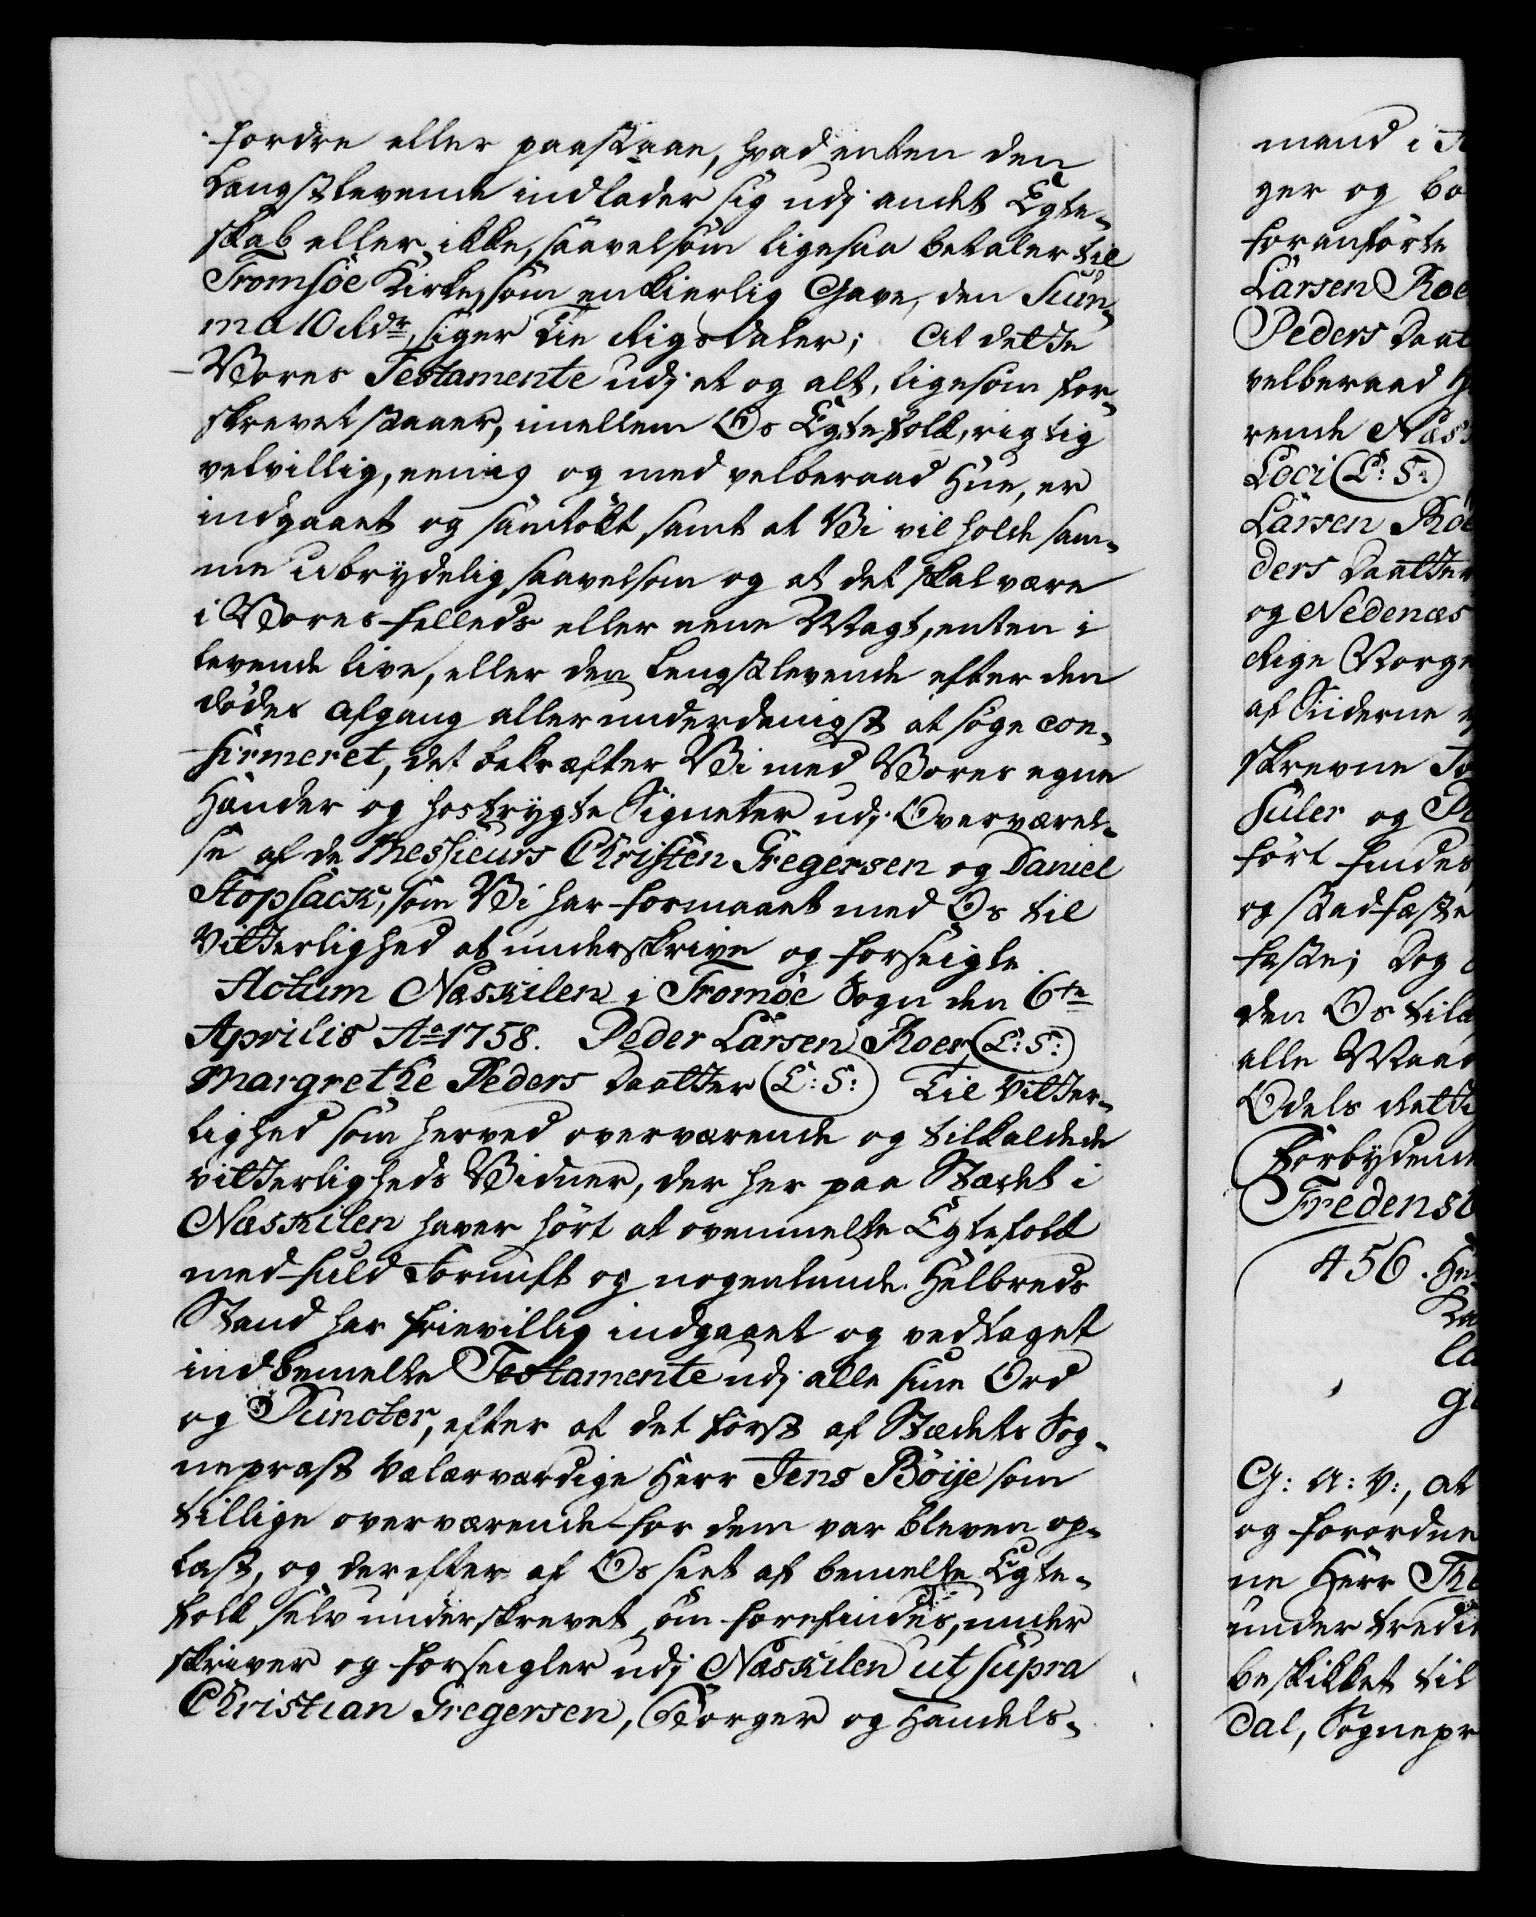 fordre eller paastaae, hvad enten den
Længstlevende indlader sig udj andet Egte-
skab eller ikke, saavelsom ligesaa betaler til
Tromsöe Kirke, som en kierlig Gave, den Sum-
ma 10 Rdr, siger Tie Rigsdaler; At dette
Vores Testamente udj et og alt, ligesom for-
skrevet staaer, imellem Os Egtefolk, rigtig
velvillig, eenig og med velberaad Hue, er
indgaaet og samtökt, samt at Vi vil holde sam-
me ubrydelig, saavelsom og at det skal være
i Vores fælleds eller eene Magt, enten i
levende live, eller den Længstlevende efter den
dödes afgang allerunderdanigst at söge con-
firmeret, det bekræfter Vi med Vores egne
Hænder og hostrygte Signeter udj Overværel-
se af de Messieurs Christen Gregersen og Daniel
Stopsack, som Vi har formaaet med Os til
Vitterlighed at underskrive og forseigle
Actum Næskilen i Tromöe Sogn den 6te
Aprilis Ao 1758. Peder Larsen Roer (L: S:)
Margrethe Peders Daatter (L: S:) Til Vitter-
lighed som herved overværende og tilkaldede
vitterligheds Vidner, der her paa Stædet i
Næskilen haver hört at ovenmelte Egtefolk
med fuld Fornuft og nogenlunde Helbreds
Stand har frievillig indgaaet og vedtaget
indbemelte Testamente udj alle sine Ord
og Puncter, efter at det först af Stædets Sog-
neprast Velærværdige Herr Jens Böije som
tillige overværende for dem var bleven op-
læst, og derefter af Os seet af bemelte Egte-
folk selv underskrevet, om forefindes, under
skriver og forseigler udj Næskilen ut supra
Christian Gregersen, Borger og Handels-
mand i
ger og bo
foranförte
Larsen Roe
Peders Daat
velberaad H
rende Næs
Loci (L: S:)
Larsen Roe
ders Daatter
og Nedenæs
Rige Norge
af Siiderne
skrevne
fuler og
fört findes
og stadfæste
fæste; Dog
den Os til
alle Maa
Odels Retti
Forbydende
Fredensb
456.

la

G: A: V:, at
og forordne
ne Herr Th
under tredi
beskikket til
dal, Sognepr